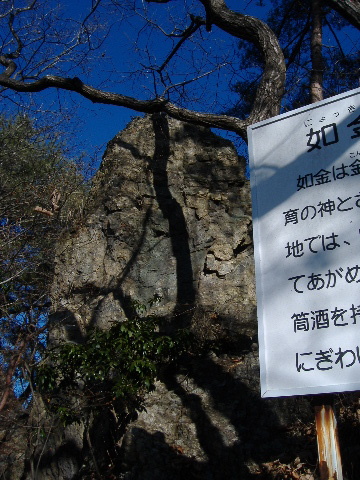 にょっ
如
如金は金
育の神とあ
地では、
てあがめ
筒酒を持
にぎわい